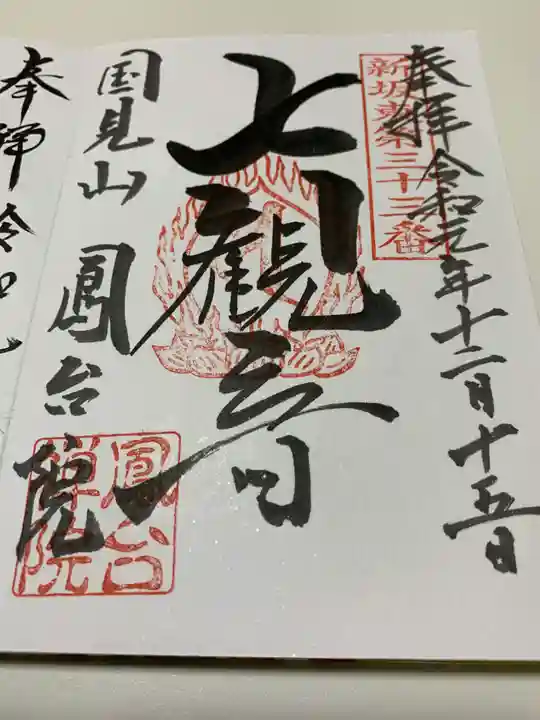 奉拝 令和元年十二月十五日
新坂東第三十三番
七観音
国見山 鳳台院
鳳台
禅院
奉拝 令和